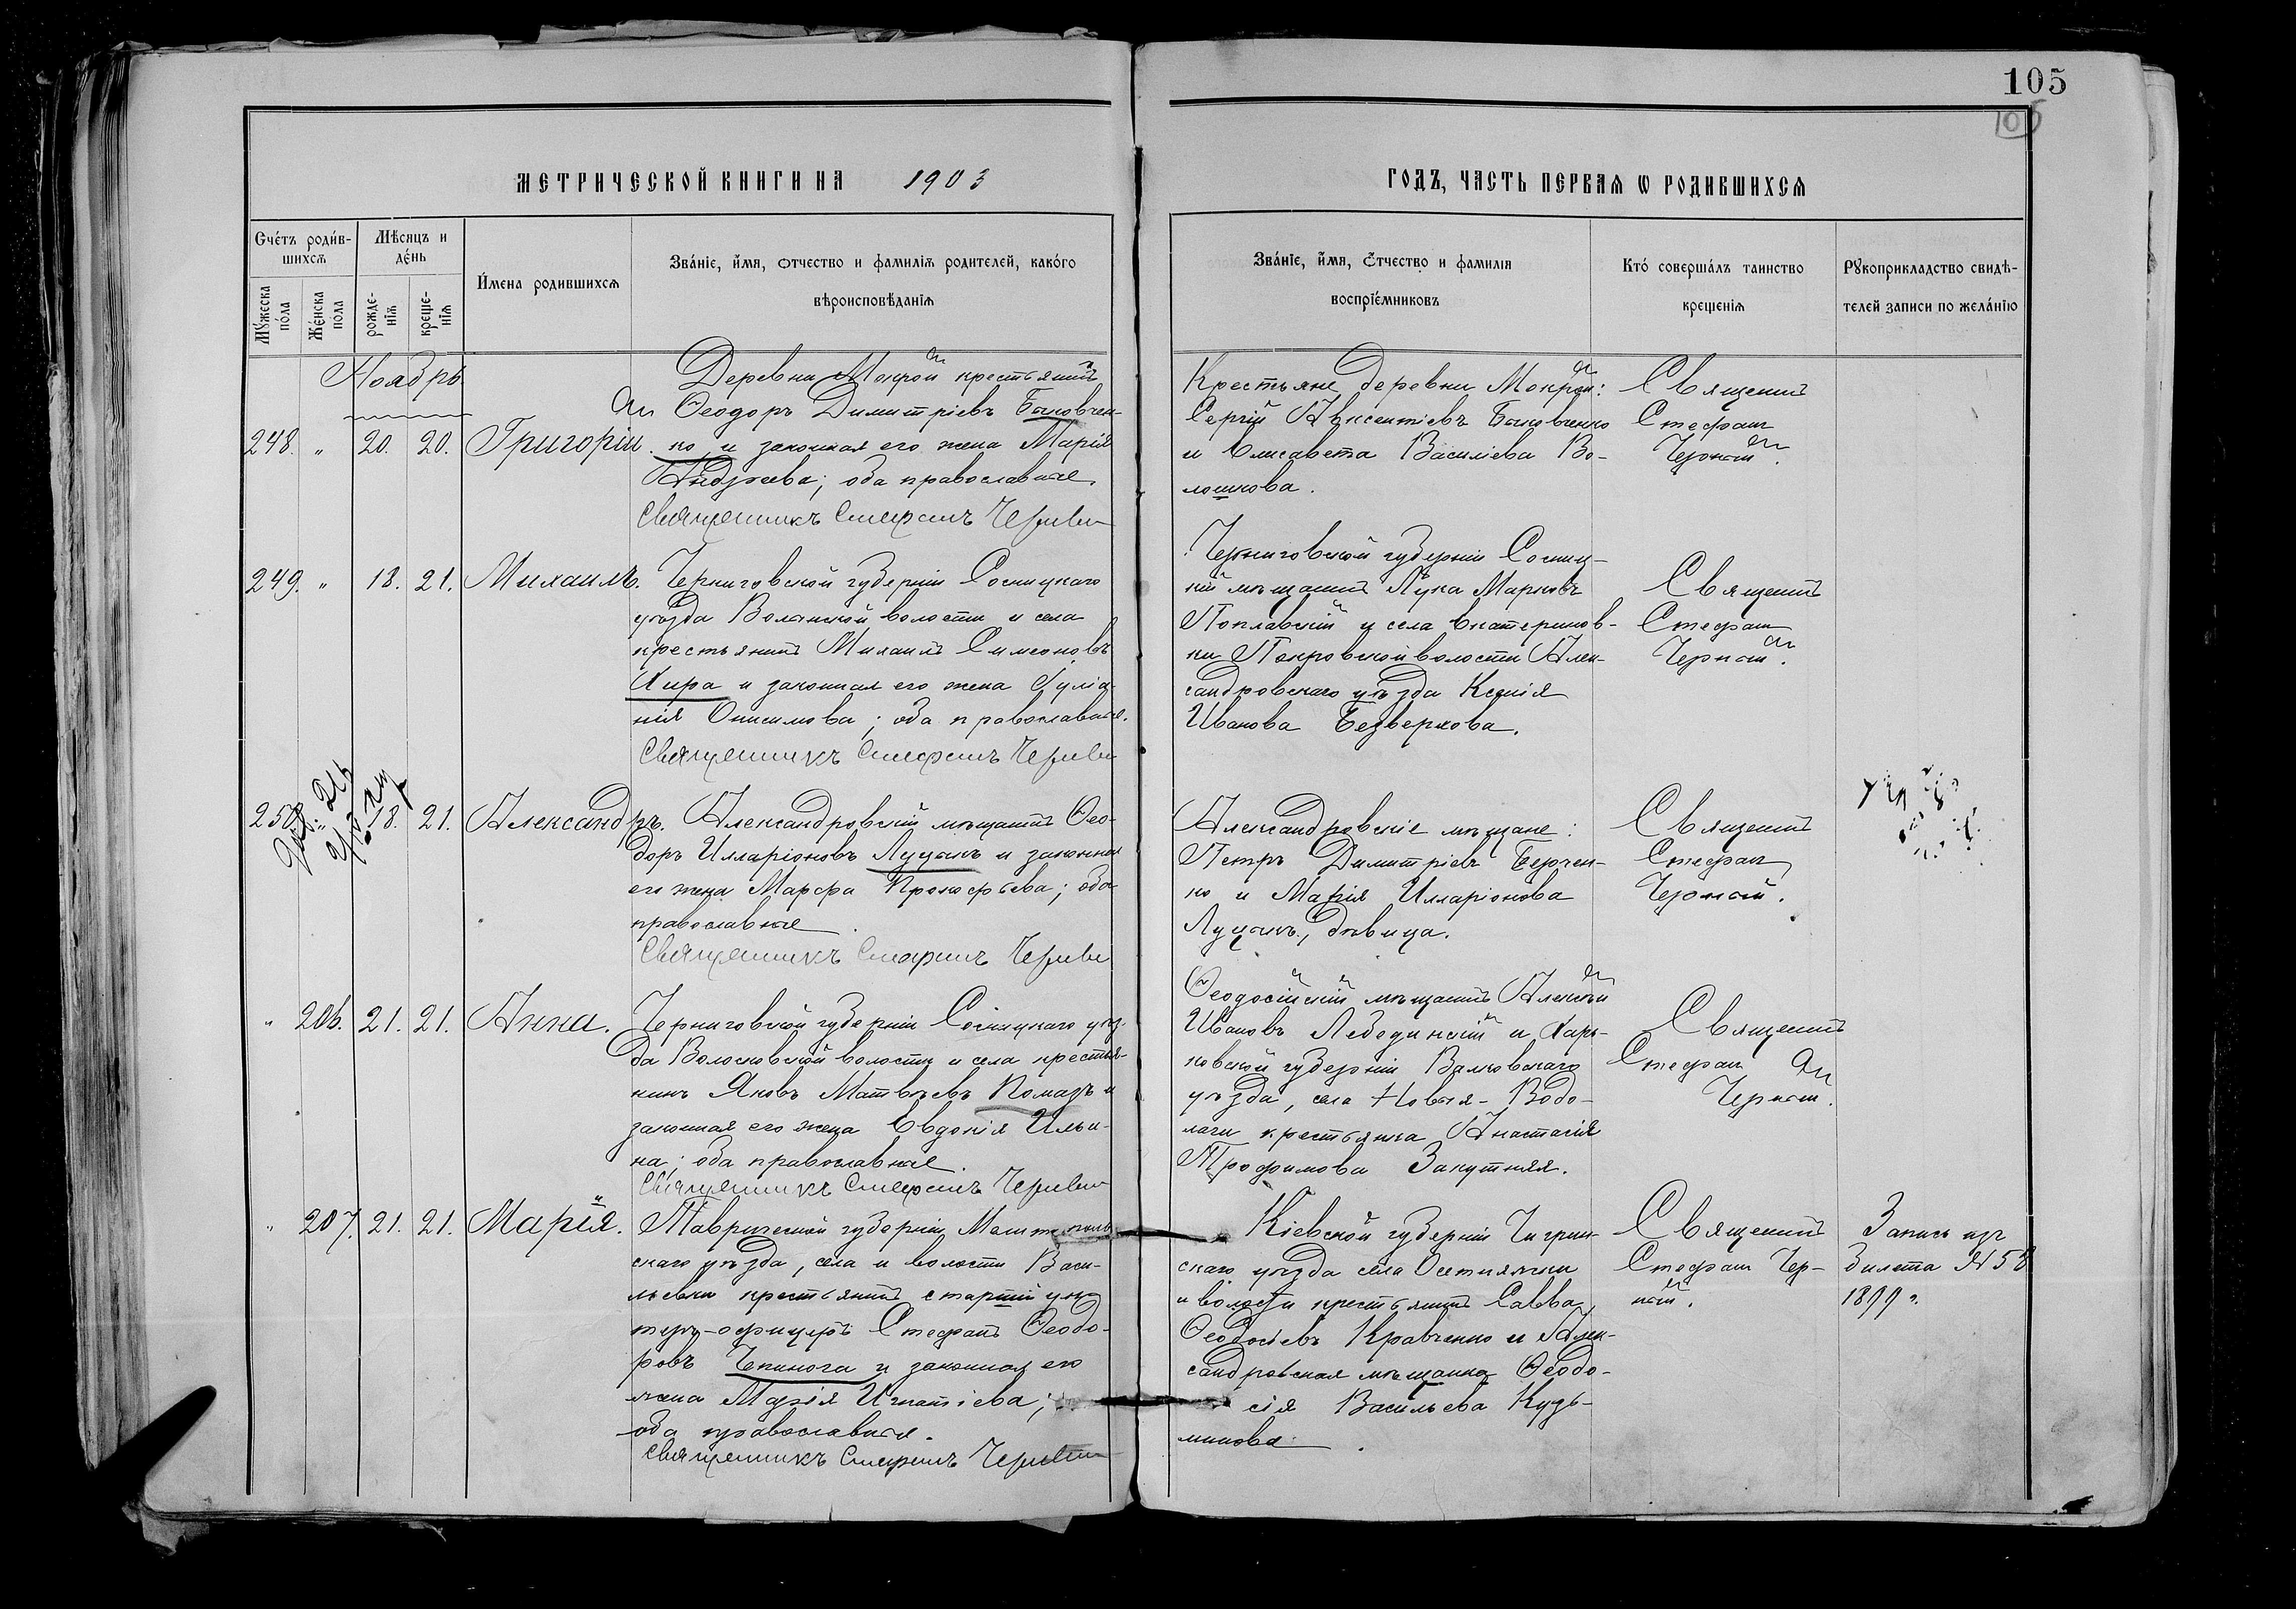 105
105
МЕТРИЧЕСКОЙ КНИГИ НА 1903
ГОДЪ, ЧАСТЬ ПЕРВАѦ Ѡ РОДИВШИХСѦ
Счéтъ роди́в-
шихсѧ
Мꙋ́жеска
по́ла
Же́нска
пола
Мѣ́сяцъ и
де́нь
рожде-
нїѧ
креще-
нїѧ
И́мена родившихсѧ
Зва́нїе, и́мя, отчество и фамилїѧ родителей, како́го
вѣроисповѣ́данїѧ
Зва́нїе, и́мя, Ѻ́тчество и фамилїѧ
воспрїе́мниковъ
Кто́ соверша́лъ таинство
крещенїѧ
Рꙋкоприкладство свидѣ́-
телей записи по жела́нїю
Ноябрь
248. " 20. 20. Григорій.
Деревни Мокрой крестьянинъ
Ѳеодоръ Димитріевъ Быковчен-
ко и законная его жена Марія
Андреева; оба православные.
Священникъ Стефанъ
Крестьяне деревни Мокрой:
Сергій Авксентіевъ Быковченко
и Елисавета Василіева Во-
лошкова.
Священникъ
Стефанъ
249. " 18. 21. Михаилъ.
Черниговской губерніи Сосницкаго
уѣзда Волынской волости и села
крестьянинъ Михаилъ Симеоновъ
Хира и законная его жена Іуліа-
нія Онисимова; оба православные.
Священникъ Стефанъ
Черниговской губерніи Сосниц-
кій мѣщанинъ Лука Марковъ
Поплавскій и села Екатеринов-
ки Покровской волости Алек-
сандровскаго уѣзда Ксенія
Иванова Безверхова.
Священникъ
Стефанъ
250. " 18. 21. Александръ.
Александровскій мѣщанинъ Ѳео-
доръ Илларіоновъ Луцакъ и законная
его жена Марѳа Прокофьева; оба
православные
Священникъ Стефанъ
Александровскіе мѣщане:
Петръ Димитріевъ
ко и Марія Илларіонова
Луцакъ, дѣвица.
Священникъ
Стефанъ
" 206. 21. 21. Анна.
Черниговской губерніи Сосницкаго уѣз-
да Волосковской волости и села крестья-
нинъ Яковъ Матвѣевъ Комаръ и
законная его жена Евдокія Ильи-
на; оба православные.
Священникъ Стефанъ
Ѳеодосійскій мѣщанинъ Алексѣй
Ивановъ Лебединскій и Харь-
ковской губерніи Валковскаго
уѣзда, села Новыя-Водо-
лаги крестьянка Анастасія
Трофимова Закутняя.
Священникъ
Стефанъ
" 207. 21. 21. Марія.
Таврической губерніи Мелитополь-
скаго уѣзда, села и волости Васи-
льевки крестьянинъ старшій ун-
теръ-офицеръ Стефанъ Ѳеодо-
ровъ Чепинога и законная его
жена Марія Игнатіева;
оба православные.
Священникъ Стефанъ
Кіевской губерніи Чигрин-
скаго уѣзда села Осетняжки
и волости крестьянинъ Савва
Ѳеодосіевъ Кравченко и Алек-
сандровская мѣщанка Ѳеодо-
сія Васильева Кузь-
минова.
Священникъ
Стефанъ
Запись изъ
билета № 58
1899 г.